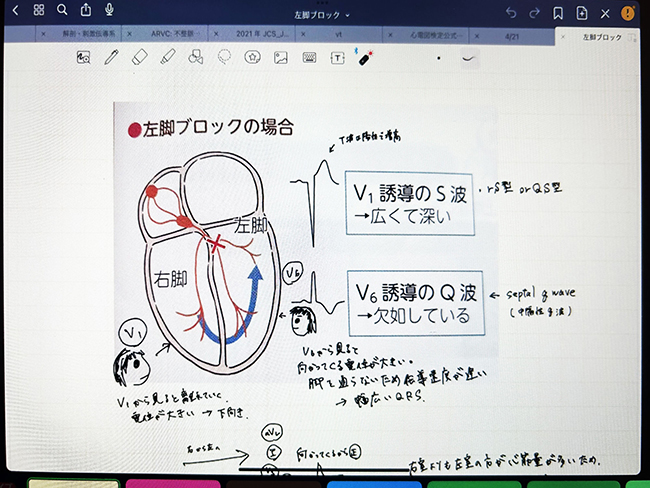 左脚ブロック
解剖・刺激伝導系
ARVC: 不整脈
2021 年 JCS_J...
vt
心電図検定公式...
4/21
左脚ブロック
●左脚ブロックの場合
T波は陽性で増高
V1 誘導の S 波
→広くて深い
・rS型 or QS型
左脚
右脚
V6
V6 誘導の Q 波
→欠如している
← septal q wave
(中隔性q波)
V1
V6から見ると
向かってくる電位が大きい。
脚を通らないため伝導速度が遅い
→ 幅広いQRS.
V1から見ると離れていく
電位が大きい → 下向き.
右から左へ
aVL
I
向かってくるから
右室よりも左室の方が心筋量が多いため.